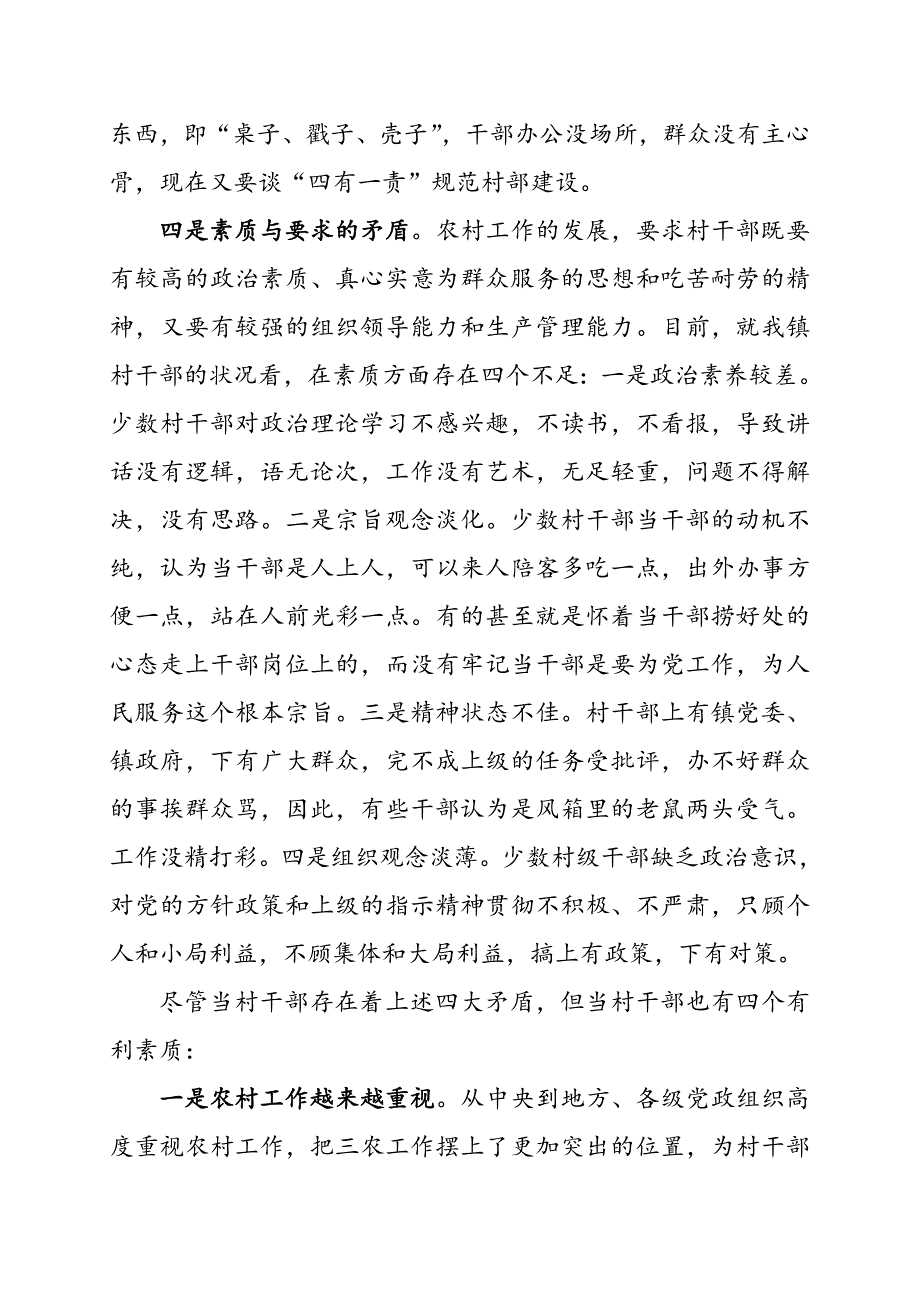 东西，即“桌子、戳子、壳子”，干部办公没场所，群众没有主心
骨，现在又要谈“四有一责”规范村部建设。
四是素质与要求的矛盾。农村工作的发展，要求村干部既要
有较高的政治素质、真心实意为群众服务的思想和吃苦耐劳的精
神，又要有较强的组织领导能力和生产管理能力。目前，就我镇
村干部的状况看，在素质方面存在四个不足：一是政治素养较差。
少数村干部对政治理论学习不感兴趣，不读书，不看报，导致讲
话没有逻辑，语无论次，工作没有艺术，无足轻重，问题不得解
决，没有思路。二是宗旨观念淡化。少数村干部当干部的动机不
纯，认为当干部是人上人，可以来人陪客多吃一点，出外办事方
便一点，站在人前光彩一点。有的甚至就是怀着当干部捞好处的
心态走上干部岗位上的，而没有牢记当干部是要为党工作，为人
民服务这个根本宗旨。三是精神状态不佳。村干部上有镇党委、
镇政府，下有广大群众，完不成上级的任务受批评，办不好群众
的事挨群众骂，因此，有些干部认为是风箱里的老鼠两头受气。
工作没精打彩。四是组织观念淡薄。少数村级干部缺乏政治意识，
对党的方针政策和上级的指示精神贯彻不积极、不严肃，只顾个
人和小局利益，不顾集体和大局利益，搞上有政策，下有对策。
尽管当村干部存在着上述四大矛盾，但当村干部也有四个有
利素质：
一是农村工作越来越重视。从中央到地方、各级党政组织高
度重视农村工作，把三农工作摆上了更加突出的位置，为村干部